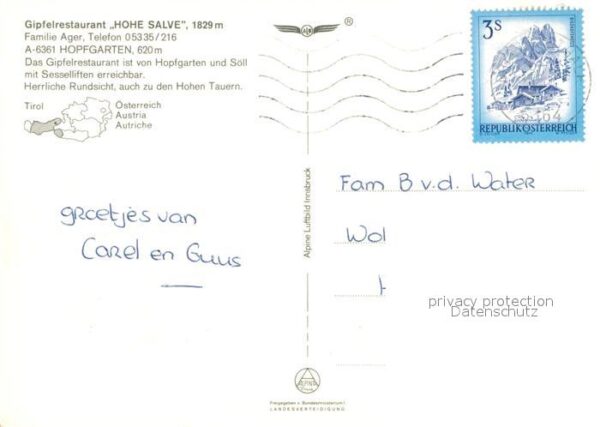 Gipfelrestaurant „HOHE SALVE", 1829 m
Familie Ager, Telefon 0 53 35 / 2 16
A-6361 HOPFGARTEN, 620 m
Das Gipfelrestaurant ist von Hopfgarten und Söll
mit Sesselliften erreichbar.
Herrliche Rundsicht, auch zu den Hohen Tauern.
Tirol
Österreich
Austria
Autriche
®
3 S
REPUBLIK ÖSTERREICH
groetjes van
Carel en Guus
Alpine Luftbild Innsbruck
Fam B v.d. Water
Wol
privacy protection
Datenschutz
ALPINE
Freigegeben v. Bundesministerium f.
LANDESVERTEIDIGUNG